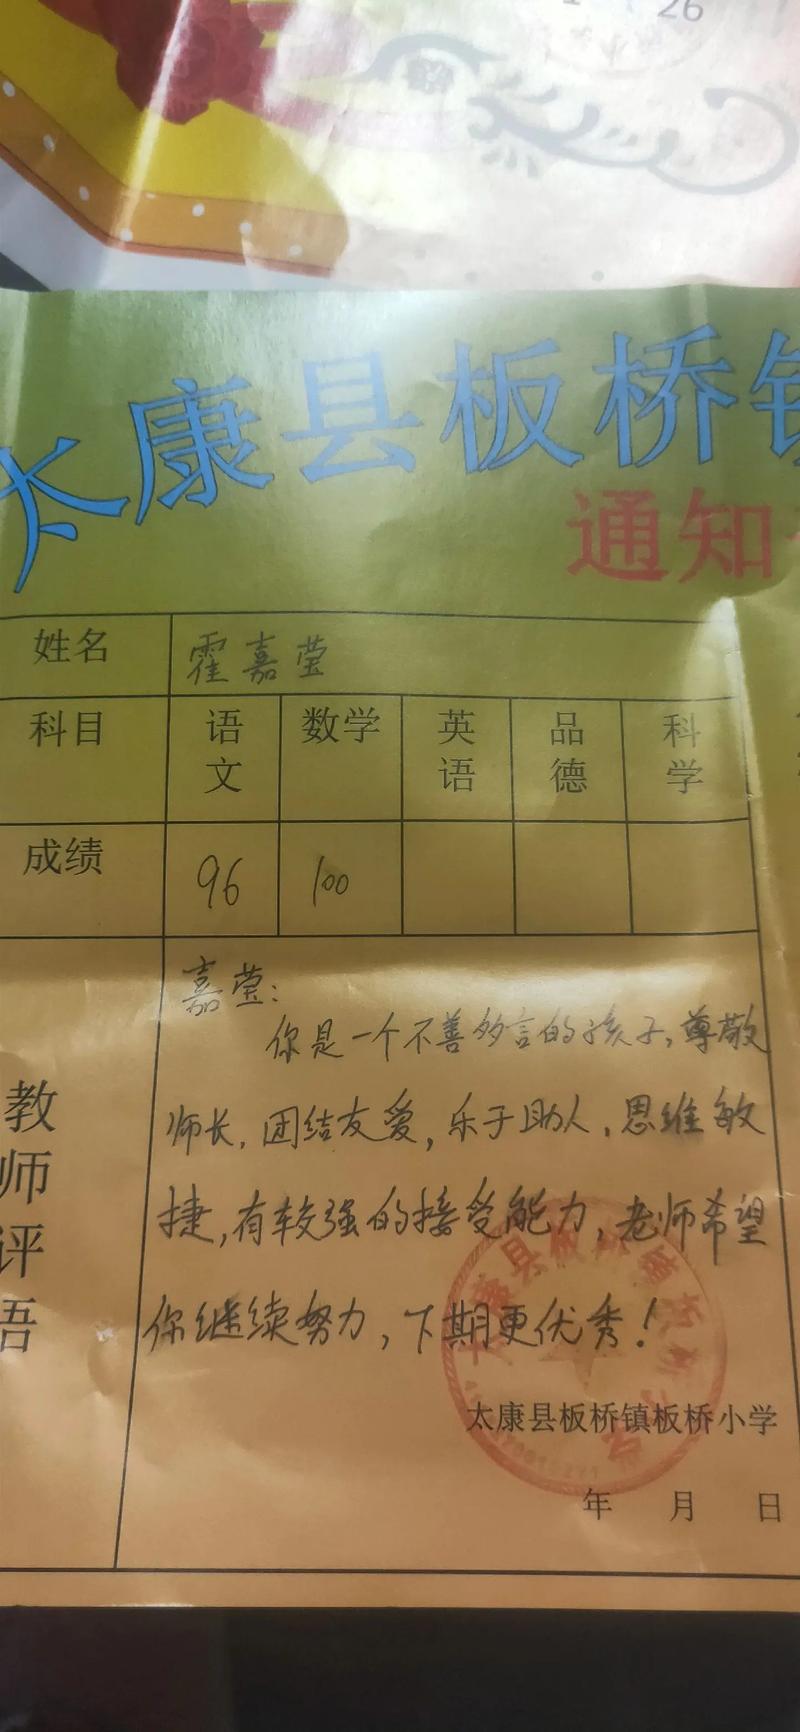 26
太康县板桥镇
通知
姓名 霍嘉莹
科目 语文 数学 英语 品德 科学
成绩 96 100
教师评语
嘉莹:
你是一个不善多言的孩子,尊敬
师长,团结友爱,乐于助人,思维敏
捷,有较强的接受能力,老师希望
你继续努力,下期更优秀!
太康县板桥镇板桥小学
年 月 日